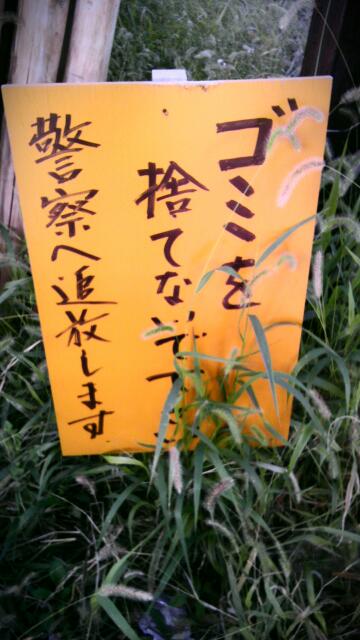 ゴミを
捨てないで
警察へ追放します